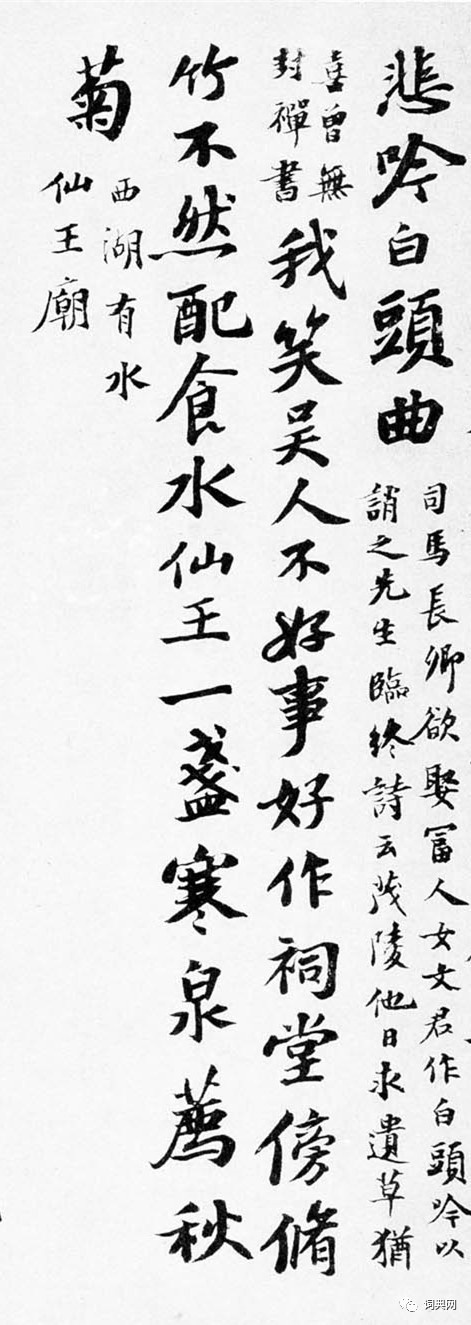 悲吟白頭曲
司馬長卿欲娶冨人女文君作白頭吟以
誚之先生臨終詩云茂陵他日求遺草猶
喜曾無
封禪書
我笑吳人不好事好作祠堂傍脩
竹不然配食水仙王一盞寒泉薦秋
菊
西湖有水
仙王廟
词典网